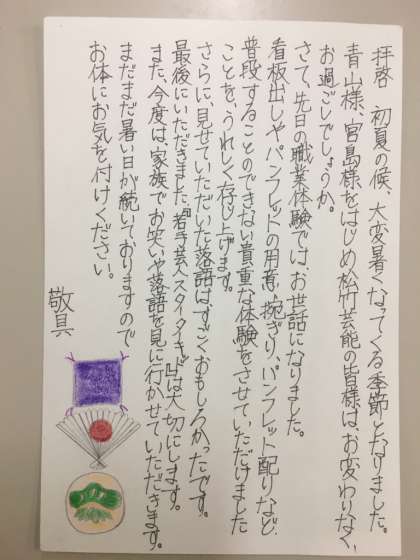 拝啓 初夏の候、大変暑くなってくる季節となりました。
青山様、宮島様をはじめ松竹芸能の皆様は、お変わりなく、
お過ごしでしょうか。
さて、先日の職業体験では、お世話になりました。
看板出しや、パンフレットの用意、捥ぎり、パンフレット配りなど、
普段することのできない貴重な体験をさせていただけました
ことを、うれしく存じ上げます。
さらに、見せていただいた落語は、すごくおもしろかったです。
最後にいただきました『若手芸人スタイタイキッド』は大切にします。
また、今度は、家族でお笑いや落語を見に行かせていただきます。
まだまだ暑い日が続いておりますので
お体にお気を付けください。
敬具